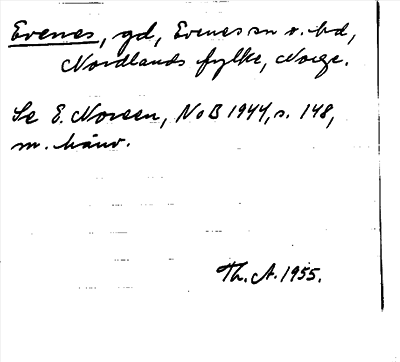 Evenes, gd, Evenes sn o. hd,
Nordlands fylke, Norge.
Se E. Noreen, NoB 1944, s. 148,
m. hänv.
Th. A. 1955.